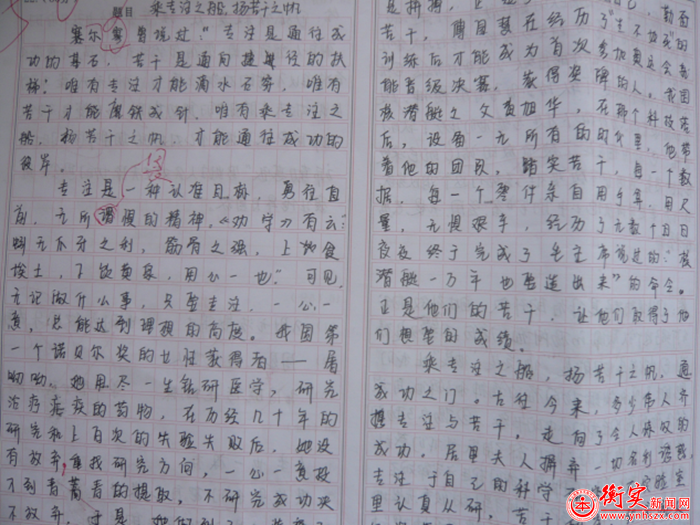 题目 乘专注之船,扬苦干之帆
塞尔曾说过:"专注是通往成
功的基石,苦干是通向捷径的扶
梯。唯有专注才能滴水石穿,唯有
苦干才能磨铁成针,唯有乘专注之
船,扬苦干之帆,才能通往成功的
彼岸。
专注是一种认准目标,勇往直
前,无所谓惧的精神。《劝学》有云:
蚓无爪牙之利,筋骨之强,上饮食
埃土,下饮黄泉,用心一也"可见,
无论做什么事,只要专注,一心一
意,总能达到理想的高度。我国第
一个诺贝尔奖的女性获得者——屠
呦呦,她用尽一生钻研医学,研究
治疗疟疾的药物,在历经几十年的
研究和上百次的失败后,她没
有放弃,重找研究方向,一心一意投
入到青蒿素的提取,不研究成功决
不放弃,于是
苦干,
训练后才能成为首次参加奥运会竟
能晋级决赛,获得奖牌的人。我国
核潜艇之父黄旭华,在那个科技落
后,设备一无所有的时代里,他带
着他的团队,踏实苦干,每一个数
据,每一个零件亲自用手算,用尺
量,无惧艰辛,经历了无数个日日
夜夜终于完成了毛主席说过的:"核
潜艇一万年也要造出来"的命令。
正是他们的苦干,让他们取得了他
们想要的成绩。
乘专注之船,扬苦干之帆,通
成功之门。古往今来,多少带人齐
携专注与苦干,走向了令人称奴的
成功。居里夫人摒弃一切名利诱惑,
专注于自己的科学
里认真从研,苦干
衡实新闻网
www.ynhszx.com